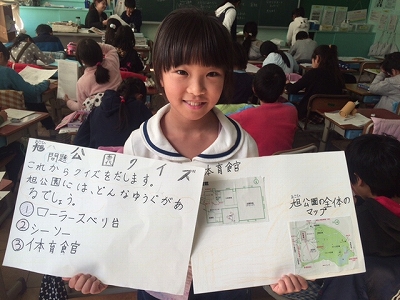 旭公園クイズ
問題
これからクイズをだします。
旭公園には、どんなゆうぐがあ
るでしょう。
①ローラースベリ台
②シーソー
③体育館
体育館
旭公園の全体の
マップ